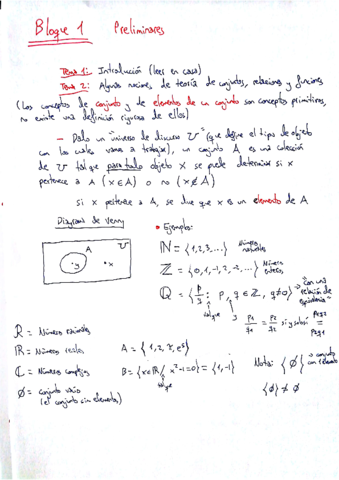 Bloque 1 Preliminares
Tema 1: Introducción (leer en casa)
Tema 2: Algunas nociones de teoría de conjuntos, relaciones y funciones
(Los conceptos de conjunto y de elementos de un conjunto son conceptos primitivos,
no existe una definición rigurosa de ellos)
— Dado un "universo de discurso U" (que define el tipo de objeto
con los cuales vamos a trabajar), un conjunto A es una colección
de U tal que para todo objeto x se puede determinar si x
pertenece a A (x∈A) o no (x∉A)
Si x pertenece a A, se dice que x es un elemento de A
Diagrama de Venn
A U
•y •x
• Ejemplos:
ℕ = {1,2,3,...} Números naturales
ℤ = {0,1,-1,2,-2,...} Números enteros
ℚ = {p/q : p, q ∈ ℤ, q≠0} → con una relación de equivalencia
tal que
p1/q1 = p2/q2 si y solo si p1q2 = p2q1
= Números racionales
ℝ = Números reales
ℂ = Números complejos
∅ = conjunto vacío
(el conjunto sin elementos)
B = {x∈ℝ / x²-1=0} = {1,-1}
tal que
Nota: {∅} → conjunto con
{∅} ≠ ∅